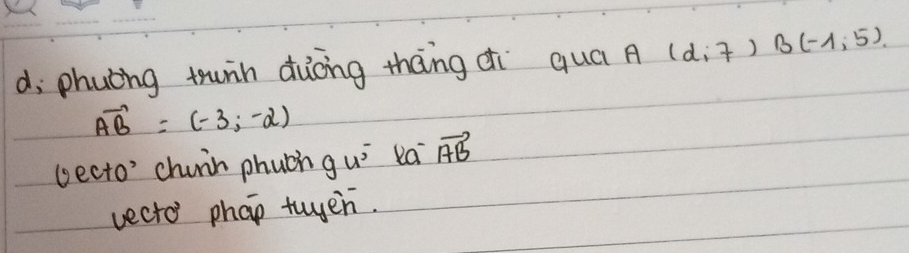 d; phương trình đường thẳng đi qua A (2;7) B(-1;5).
AB→ = (-3;-2)
vectơ chỉnh phương u→ là AB→
vectơ pháp tuyến.